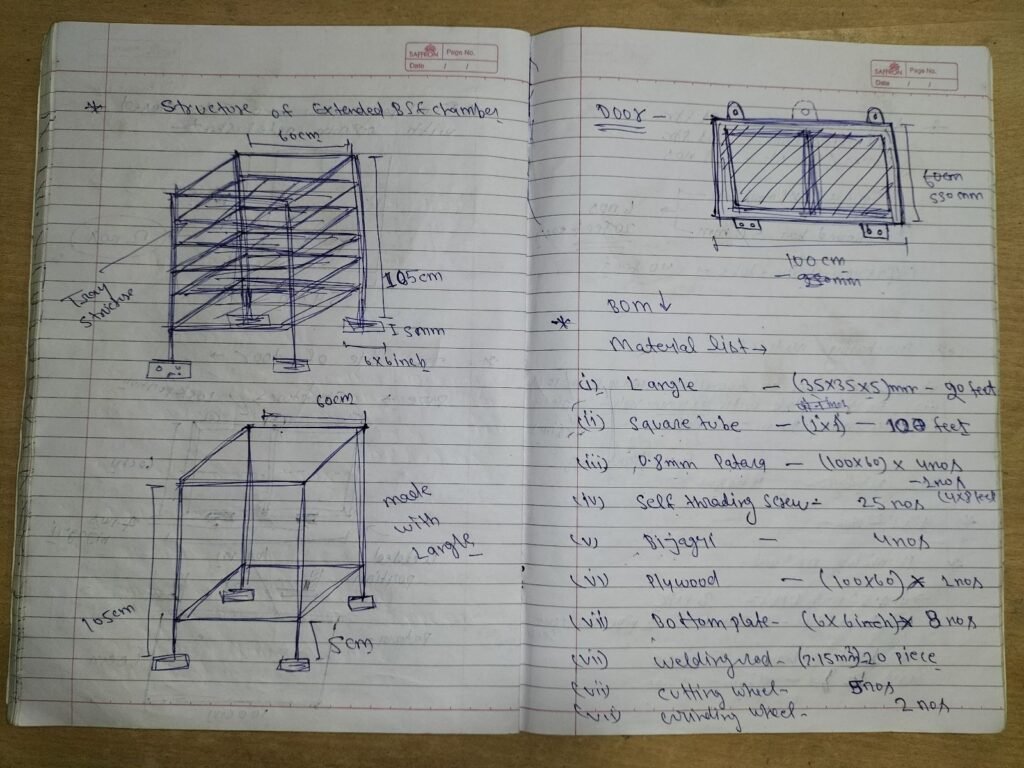 SAFFRON Page No.
Date / /
* Structure of Extended BSF chamber
60cm
Tray
structure
105cm
5mm
6x6inch
60cm
made
with
Langle
105cm
5cm
SAFFRON Page No.
Date / /
Door -
60cm
550 mm
100 cm
BOM ↓
*
Material list →
(i) L angle - (35x35x5)mm - 20 feet
(ii) Square tube - (1"x1") - 100 feet
(iii) 0.8mm Patara - (100x60) x 4nos
- 1nos
(4x8feet
(iv) Self thrading screw - 25 nos
(v) Bijagri - 4nos
(vi) Plywood - (100x60) x 1nos
(vii) Bottom plate - (6x6inch) x 8 nos
(vii) welding rod - 20 piece
(vii) cutting wheel - 5nos
(viii) Grinding wheel - 2 nos